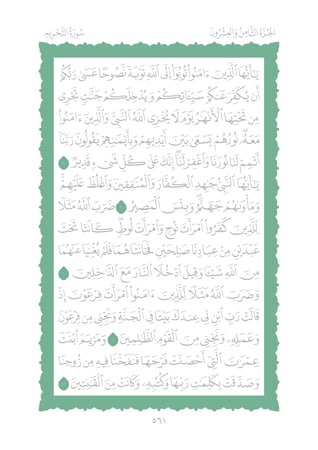 الجزء الثامن والعشرون
سورة التحريم
يَٰٓأَيُّهَا ٱلَّذِينَ ءَامَنُوا۟ تُوبُوٓا۟ إِلَى ٱللَّهِ تَوْبَةً نَّصُوحًا عَسَىٰ رَبُّكُمْ
أَن يُكَفِّرَ عَنكُمْ سَيِّـَٔاتِكُمْ وَيُدْخِلَكُمْ جَنَّٰتٍ تَجْرِى
مِن تَحْتِهَا ٱلْأَنْهَٰرُ يَوْمَ لَا يُخْزِى ٱللَّهُ ٱلنَّبِىَّ وَٱلَّذِينَ ءَامَنُوا۟
مَعَهُۥ نُورُهُمْ يَسْعَىٰ بَيْنَ أَيْدِيهِمْ وَبِأَيْمَٰنِهِمْ يَقُولُونَ رَبَّنَآ
أَتْمِمْ لَنَا نُورَنَا وَٱغْفِرْ لَنَآ إِنَّكَ عَلَىٰ كُلِّ شَىْءٍ قَدِيرٌ
يَٰٓأَيُّهَا ٱلنَّبِىُّ جَٰهِدِ ٱلْكُفَّارَ وَٱلْمُنَٰفِقِينَ وَٱغْلُظْ عَلَيْهِمْ
وَمَأْوَىٰهُمْ جَهَنَّمُ وَبِئْسَ ٱلْمَصِيرُ ضَرَبَ ٱللَّهُ مَثَلًا
لِّلَّذِينَ كَفَرُوا۟ ٱمْرَأَتَ نُوحٍ وَٱمْرَأَتَ لُوطٍ كَانَتَا تَحْتَ
عَبْدَيْنِ مِنْ عِبَادِنَا صَٰلِحَيْنِ فَخَانَتَاهُمَا فَلَمْ يُغْنِيَا عَنْهُمَا
مِنَ ٱللَّهِ شَيْـًٔا وَقِيلَ ٱدْخُلَا ٱلنَّارَ مَعَ ٱلدَّٰخِلِينَ
وَضَرَبَ ٱللَّهُ مَثَلًا لِّلَّذِينَ ءَامَنُوا۟ ٱمْرَأَتَ فِرْعَوْنَ إِذْ
قَالَتْ رَبِّ ٱبْنِ لِى عِندَكَ بَيْتًا فِى ٱلْجَنَّةِ وَنَجِّنِى مِن فِرْعَوْنَ
وَعَمَلِهِۦ وَنَجِّنِى مِنَ ٱلْقَوْمِ ٱلظَّٰلِمِينَ وَمَرْيَمَ ٱبْنَتَ
عِمْرَٰنَ ٱلَّتِىٓ أَحْصَنَتْ فَرْجَهَا فَنَفَخْنَا فِيهِ مِن رُّوحِنَا
وَصَدَّقَتْ بِكَلِمَٰتِ رَبِّهَا وَكُتُبِهِۦ وَكَانَتْ مِنَ ٱلْقَٰنِتِينَ
٥٦١